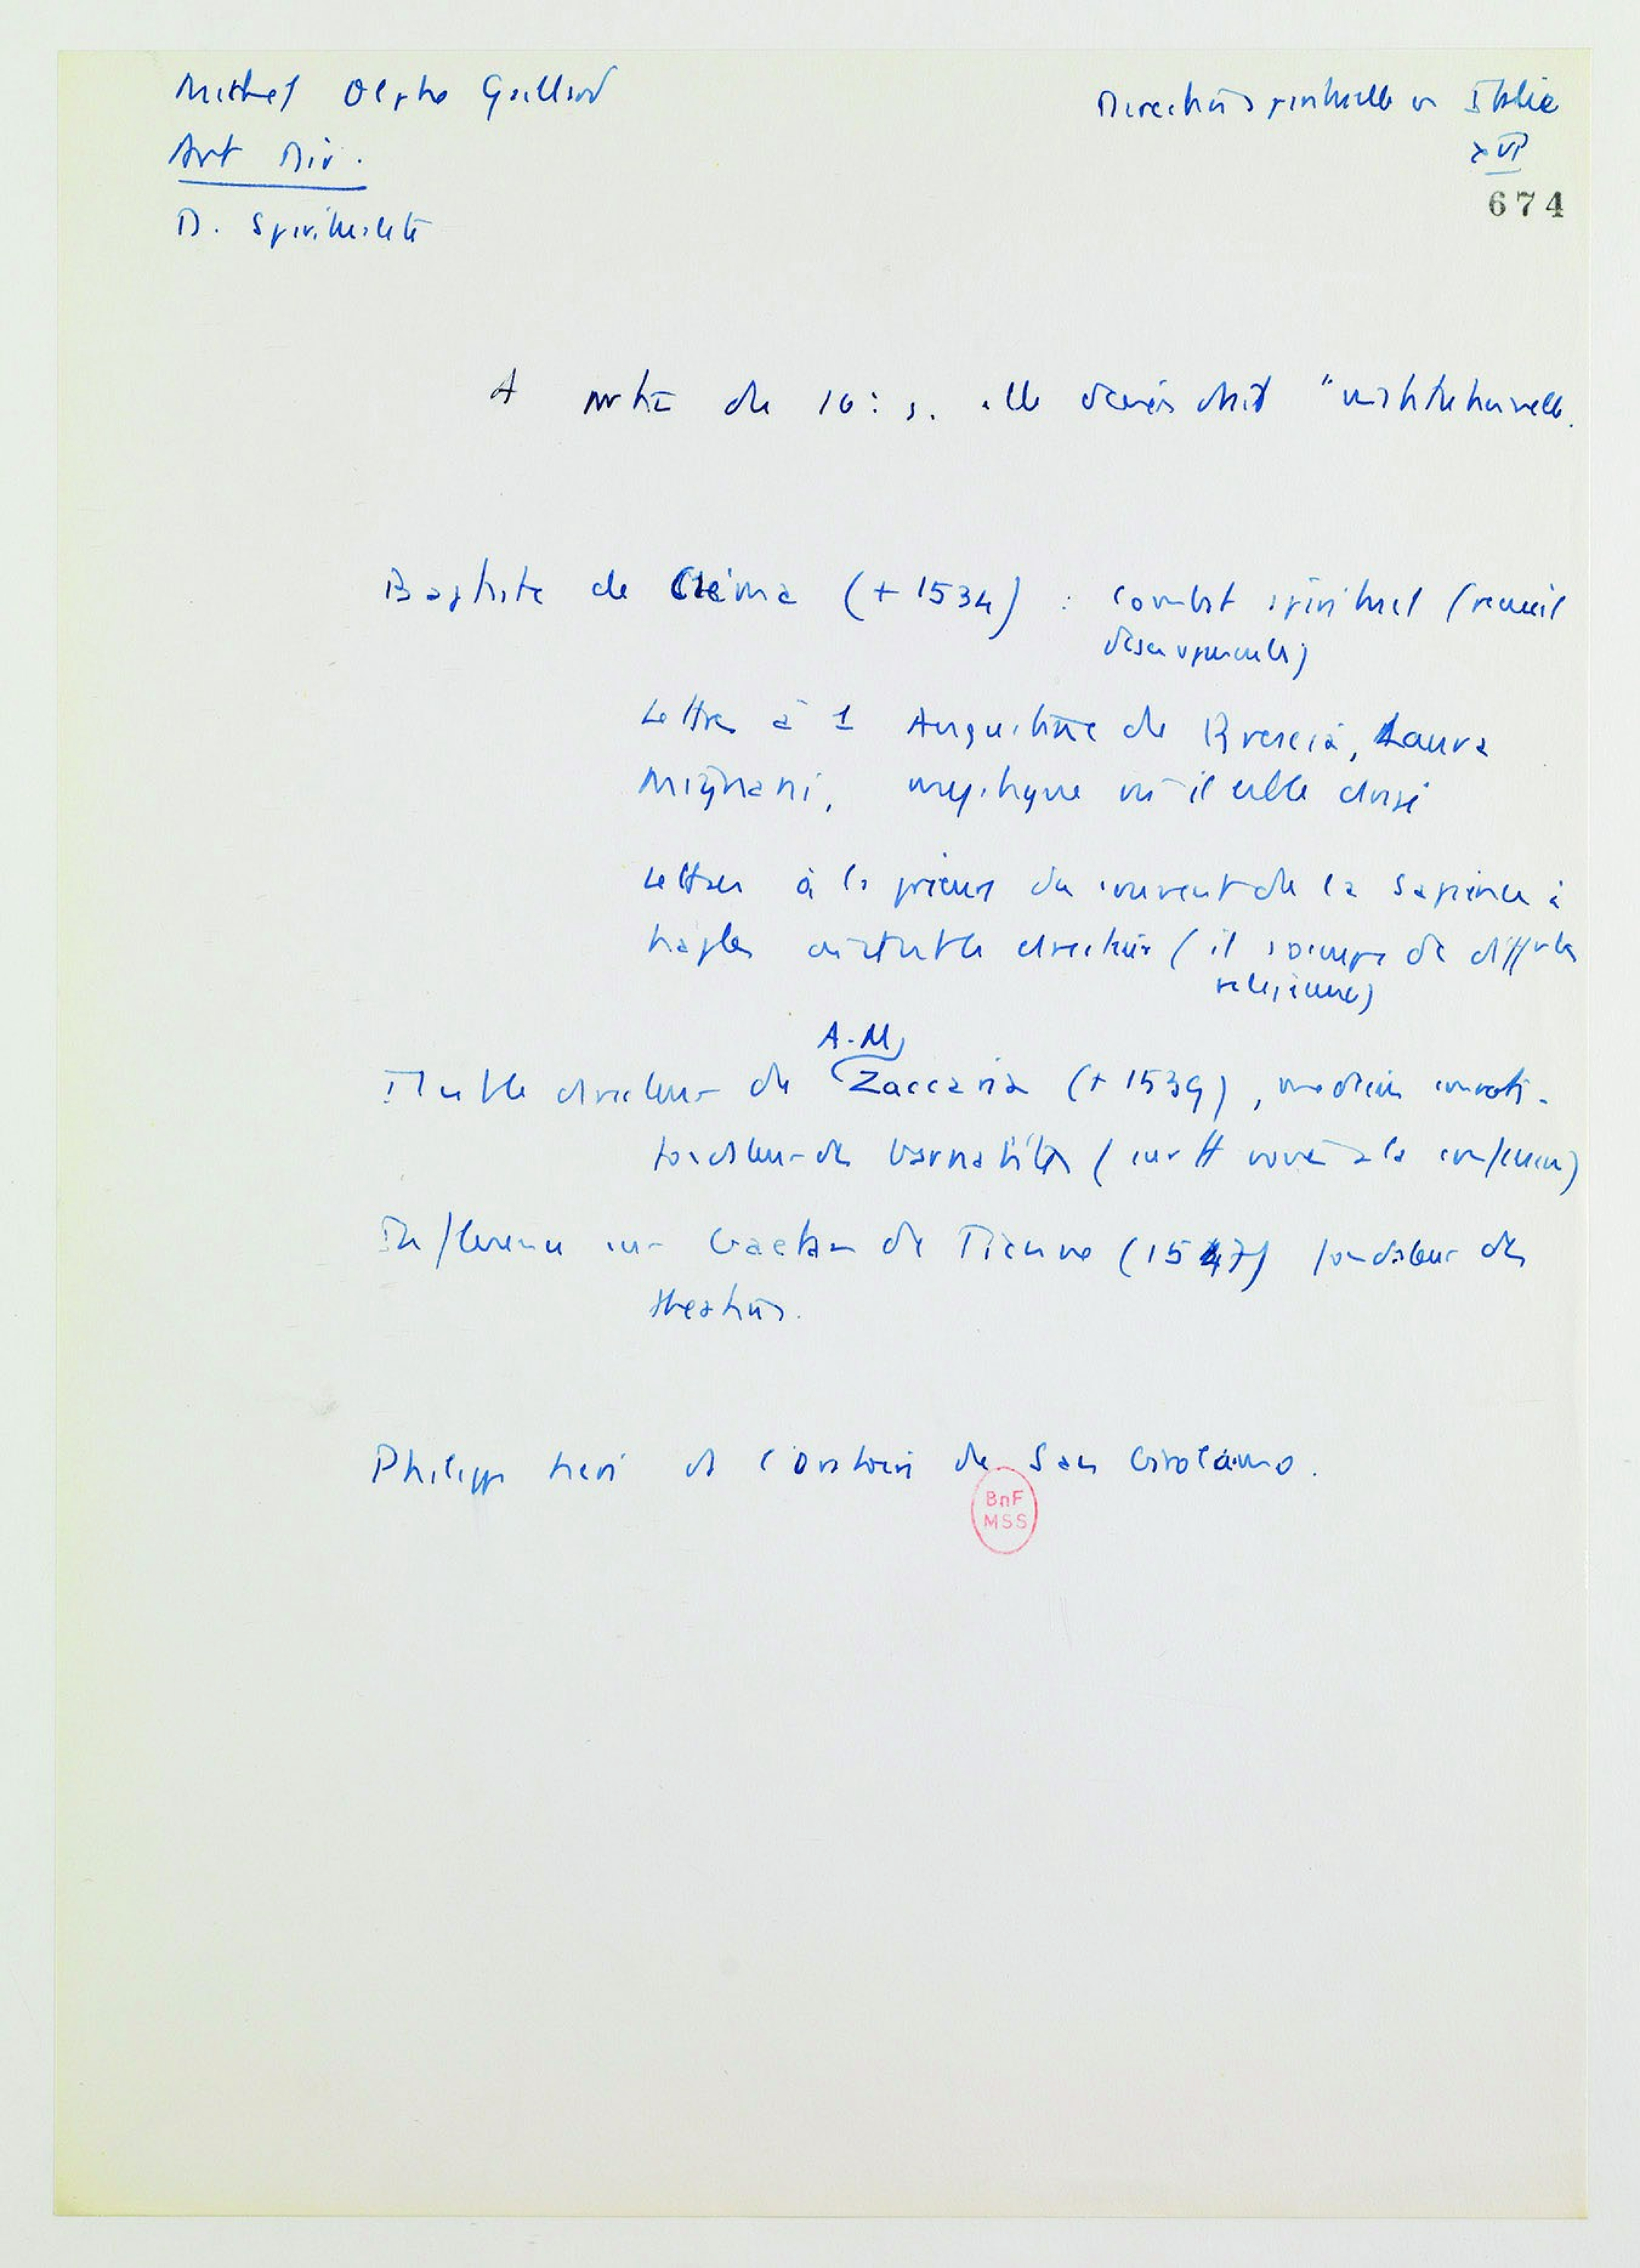 Michel Olphe Galliard
Art Dir.
D. Spiritualité
Direction spirituelle en Italie
XVI
674
A partir du 16e s. elle devient "institutionnelle.
Baptiste de Créma (+ 1534) : combat spirituel (recueil
de ses opuscules)
Lettres à 1 Augustine de Brescia, Laura
Mignani, mystique où il est le dirigé
Lettres à la prieure du couvent de la Sapience à
Naples où il est le directeur (il s'occupe de difftes
religieuses)
A.M.
Il est le directeur de Zaccaria (+ 1539), médecin
fondateur des barnabites ( voué à la confession)
Influence sur Gaetan de Tienne (1547) fondateur des
théatins.
Philippe Neri et l'Oratoire de San Girolamo.
BnF
MSS